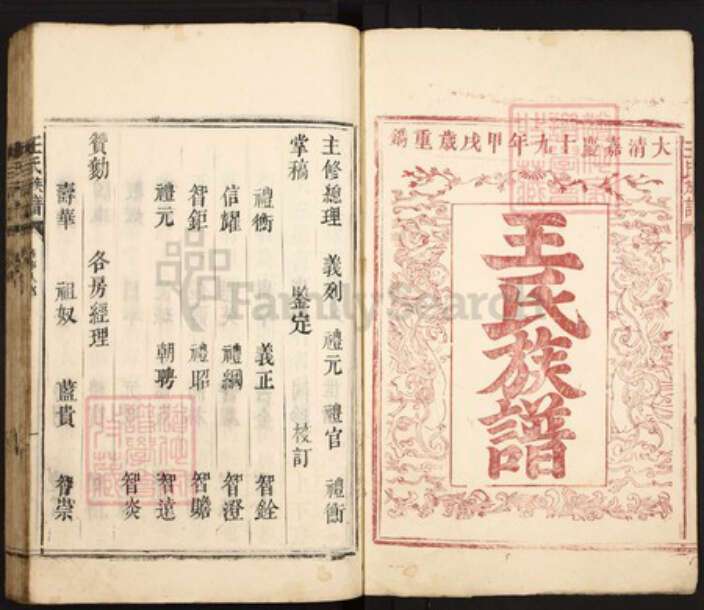 大清嘉慶十九年甲戌歲重鐫
王氏族譜
王氏族譜
主修總理 義列 禮元 禮官 禮衡
掌稿 鑒定 校訂
禮衡 義正 智銓
信耀 禮綱 智澄
智鉅 禮昭 智贍
禮元 朝聘 智達
智炎
贊勷 各房經理
壽華 祖奴 藍貴 智崇
王氏族譜
FamilySearch